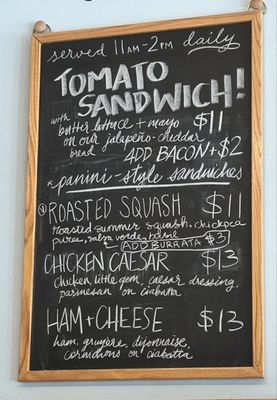 served 11AM-2PM daily
TOMATO
SANDWICH!
with butter lettuce + mayo $11
on our jalapeño-cheddar
bread ADD BACON +$2
*panini-style sandwiches
ROASTED SQUASH $11
Roasted summer squash, chickpea
puree, salsa verde,
ADD BURRATA $3
CHICKEN CAESAR $13
chicken, little gem, caesar dressing,
parmesan on ciabatta
HAM + CHEESE $13
ham, gruyère, dijonnaise,
cornichons on ciabatta